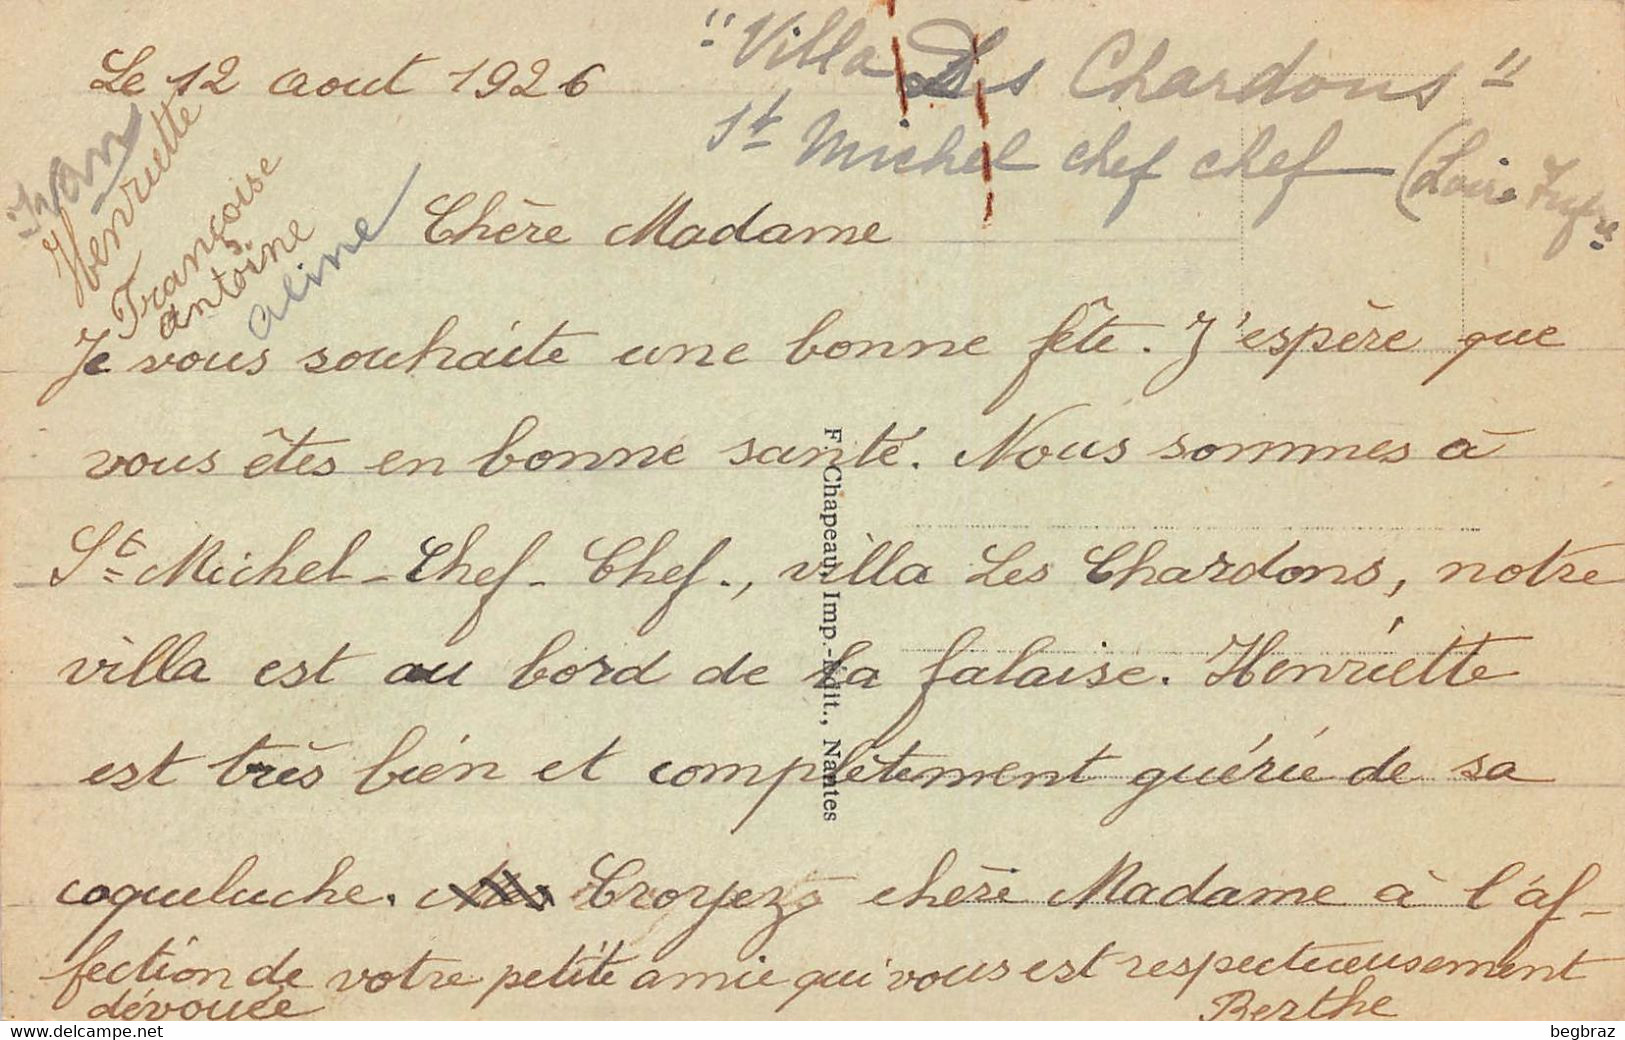 Le 12 aout 1926
"Villa Les Chardons"
St Michel chef chef (Loire Infre
Henriette
Françoise
antoine
aline
Chère Madame
Je vous souhaite une bonne fête. J'espère que
vous êtes en bonne santé. Nous sommes à
St Michel-Chef-Chef., villa Les Chardons, notre
villa est au bord de la falaise. Henriette
est très bien et complètement guérie de sa
coqueluche. Croyez chère Madame à l'af-
fection de votre petite amie qui vous est respectueusement
dévouée
Berthe
F. Chapeau, Imp.-Edit., Nantes
www.delcampe.net
begbraz